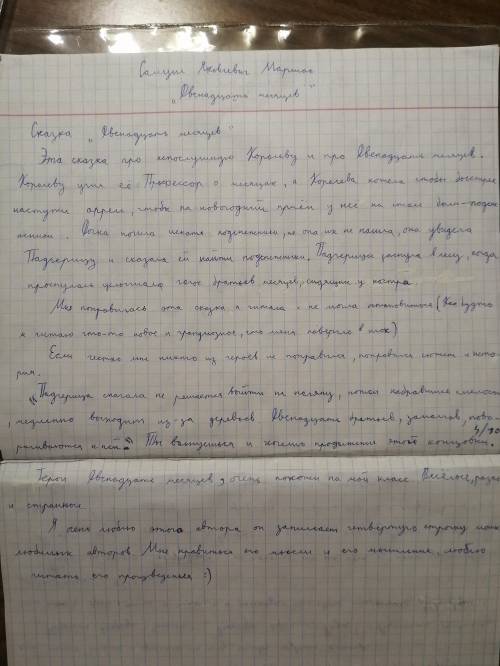 Самуил Яковлевич Маршак
„Двенадцать месяцев"
Сказка „Двенадцать месяцев"
Эта сказка про непослушную Королеву и про Двенадцать месяцев.
Королеву учил её Профессор о месяцах, а Королева хотела чтобы быстрее
наступил апрель, чтобы на новогодний приём у неё на столе были подсне
жники. Дочка пошла искать подснежники, но она их не нашла, она увидела
Падчерицу и сказала ей найти подснежники. Падчерица уснула в лесу, когда
проснулась услышала голос братьев месяцев, сидящих у костра.
Мне понравилась эта сказка, я читала и не могла остановиться (Как будто
я читаю что-то новое и грандиозное, что меня повергло в шок)
Если честно мне никто из героев не понравился, понравился сюжет и исто-
рия.
„Падчерица сначала не решается войти на поляну, потом набравшись смелости
, медленно выходит из-за деревьев. Двенадцать братьев, замолчав, пово-
рачиваются к ней." Ты волнуешься и хочешь продолжения этой концовки.
Герои Двенадцати месяцев, очень похожи на мой класс. Весёлые,
и странные.
Я очень люблю этого автора он занимает четвертую строчку моих
любимых авторов. Мне нравиться его мысли и его мышление, люблю
читать его произведения :)